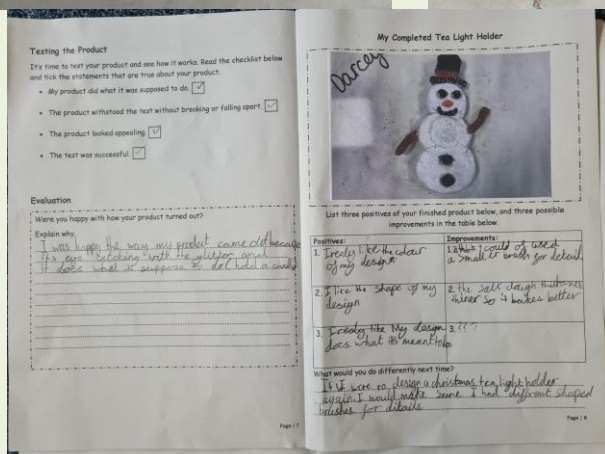 Testing the Product
It's time to test your product and see how it works. Read the checklist below
and tick the statements that are true about your product.
• My product did what it was supposed to do.
• The product withstood the test without breaking or falling apart.
• The product looked appealing.
• The test was successful.
Evaluation
Were you happy with how your product turned out?
Explain why.
I was happy the way my product came
its eye catching with the glitter and
it does what is suppose to do hold a candle
Page | 7
My Completed Tea Light Holder
Darcey
List three positives of your finished product below, and three possible
improvements in the table below.
Positives:
1. I realy like the colour
of my design
2. I like the shape of my
design
3. I realy like My design
does what its meant to
Improvements:
1. I could of used
a smaller brush for detail.
2. the salt dough
thiner so it bakes better
3. ???
What would you do differently next time?
If I were to design a christmas tea light holder
again. I would make sure I had diffront shaped
brushes for ditails
Page | 8